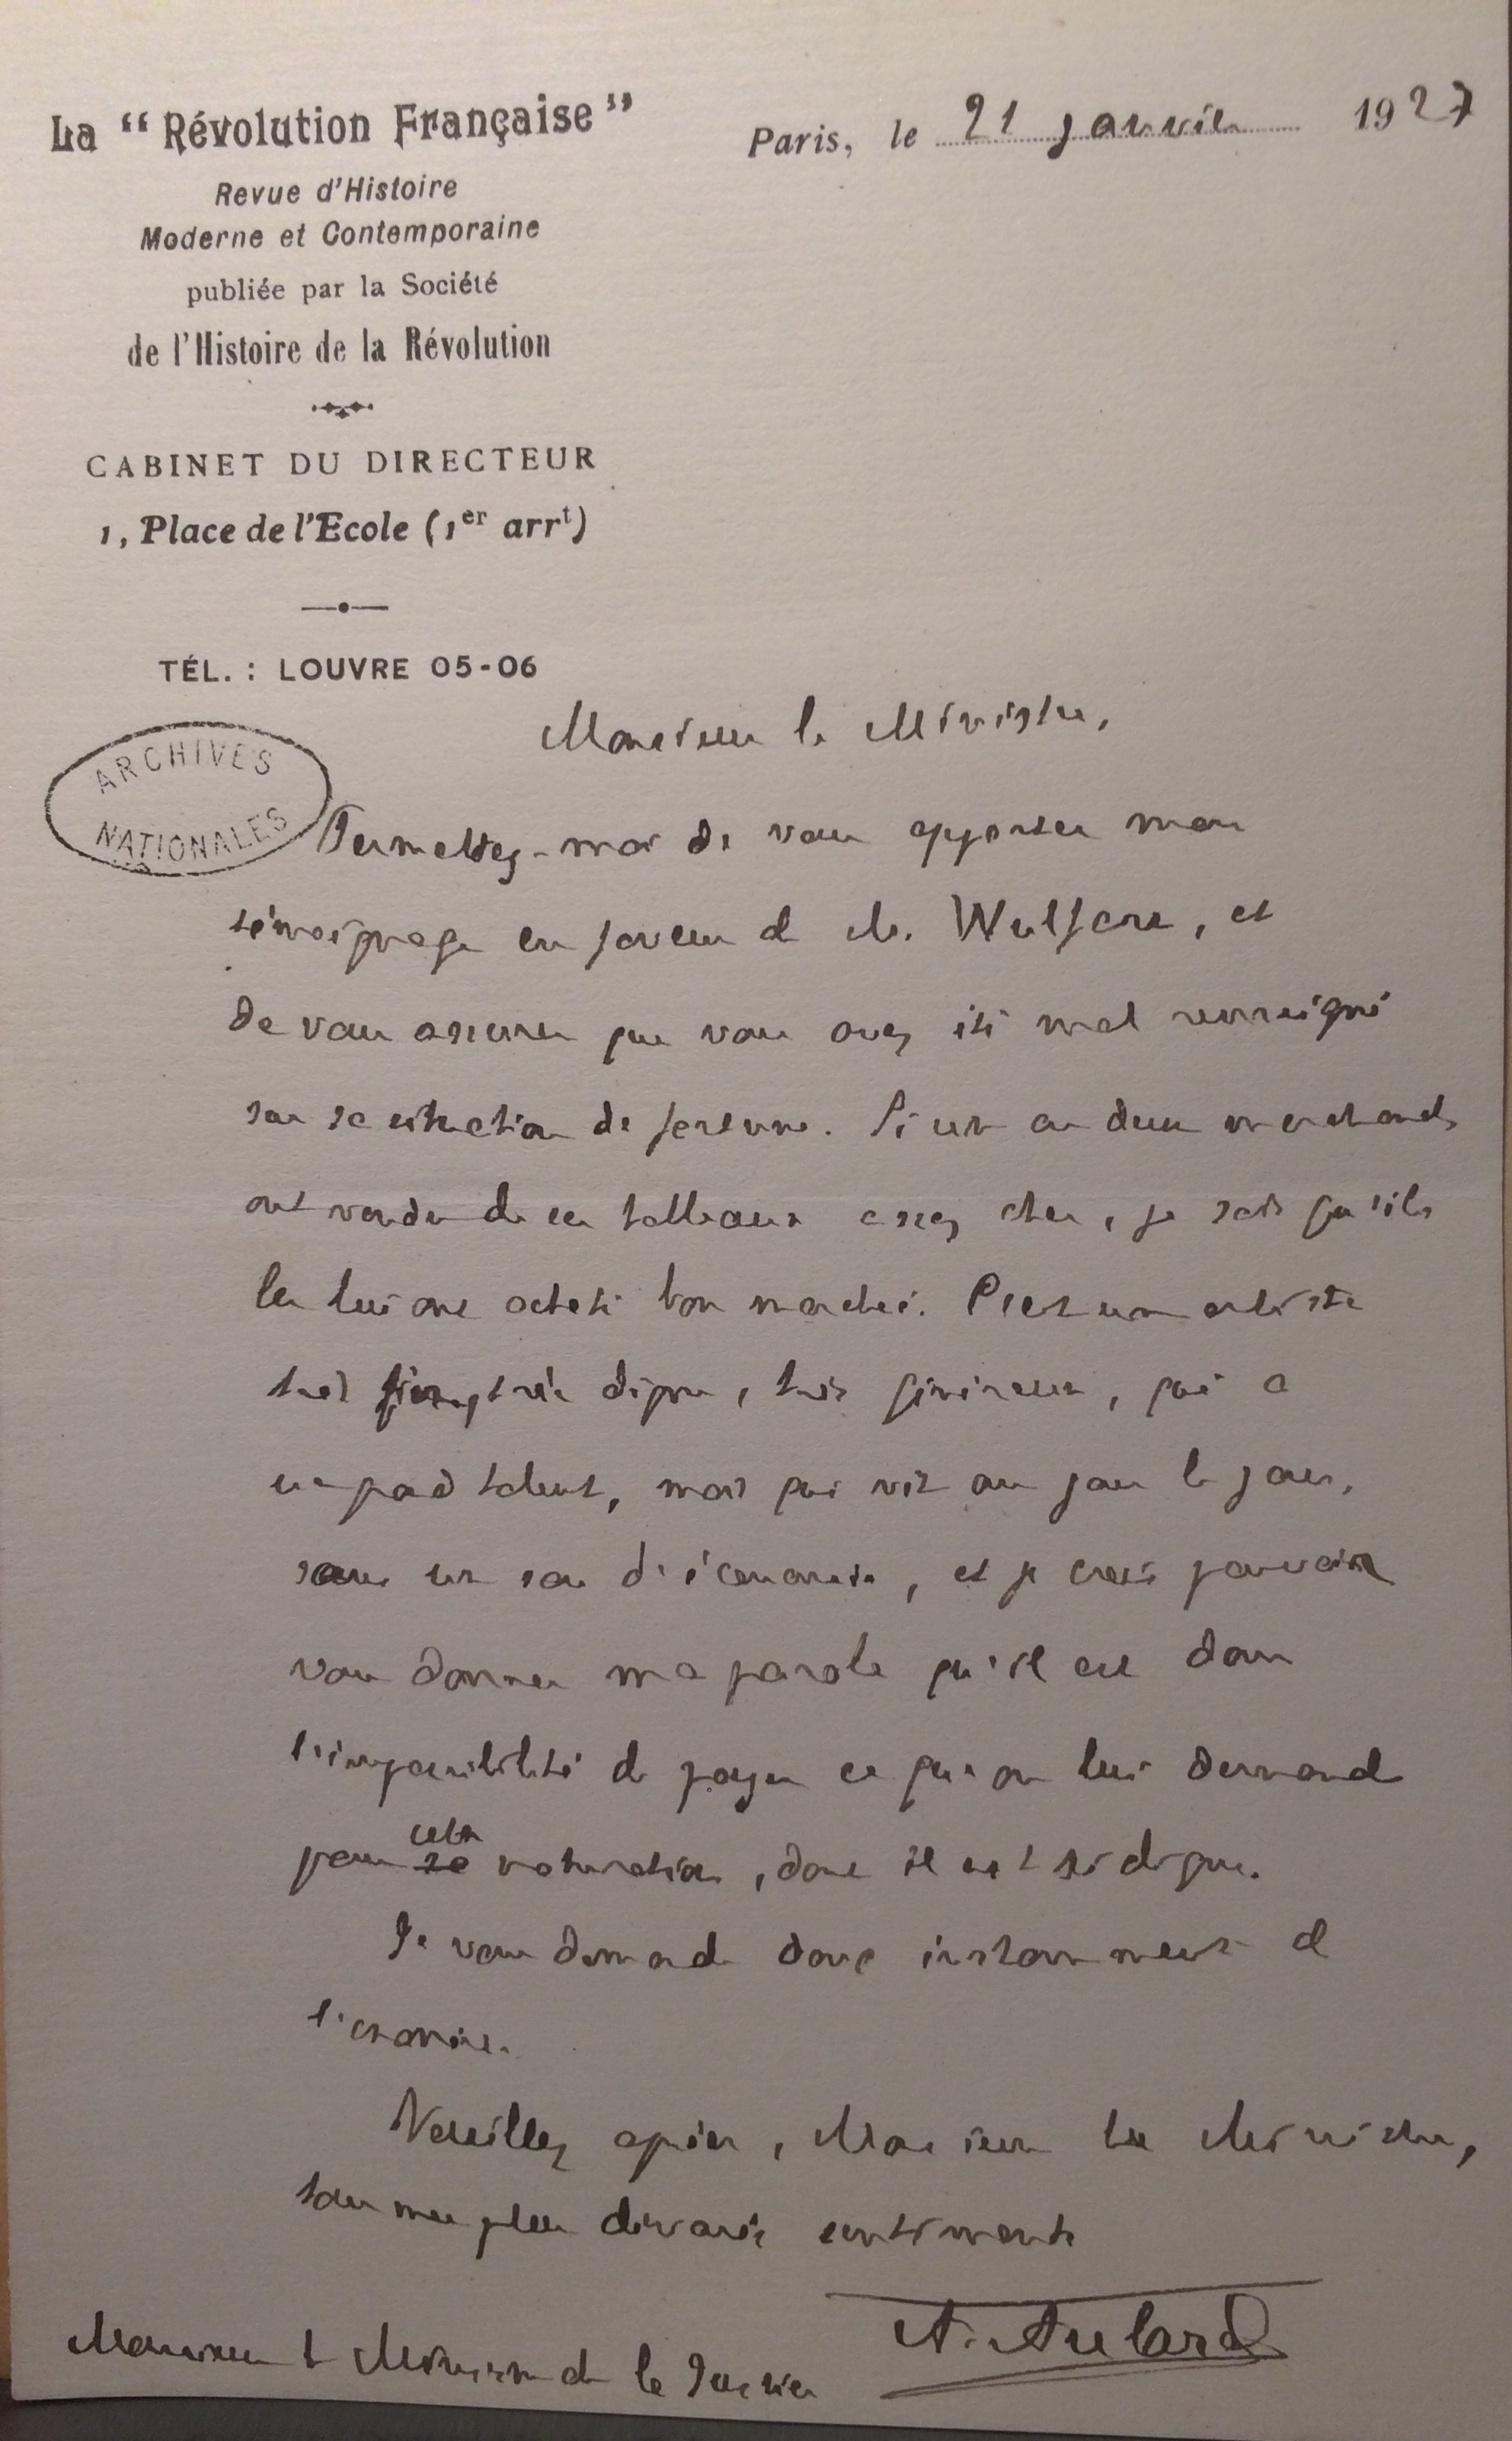 La “Révolution Française”
Revue d'Histoire
Moderne et Contemporaine
publiée par la Société
de l'Histoire de la Révolution
CABINET DU DIRECTEUR
1, Place de l'Ecole (1er arrt)
TÉL. : LOUVRE 05-06
Paris, le 21 janvier 1927
ARCHIVES
NATIONALES
Monsieur le Ministre,
Permettez-moi de vous apporter mon
témoignage en faveur de M. Wulfera, et
de vous assurer que vous avez été mal renseigné
sur sa situation de fortune. Si un ou deux marchands
ont vendu de ses tableaux assez cher, je sais qu'ils
les lui ont acheté bon marché. C'est un artiste
très fier, très digne, très généreux, qui a
un grand talent, mais qui vit au jour le jour,
sans un sou d'économie, et je crois pouvoir
vous donner ma parole qu'il est dans
l'impossibilité de payer ce qu'on lui demande
pour sa cette naturalisation, dont il est si digne.
Je vous demande donc instamment de
l'exonérer.
Veuillez agréer, Monsieur le Ministre,
tous mes plus dévoués sentiments
A. Aulard
Monsieur le Ministre de la Justice